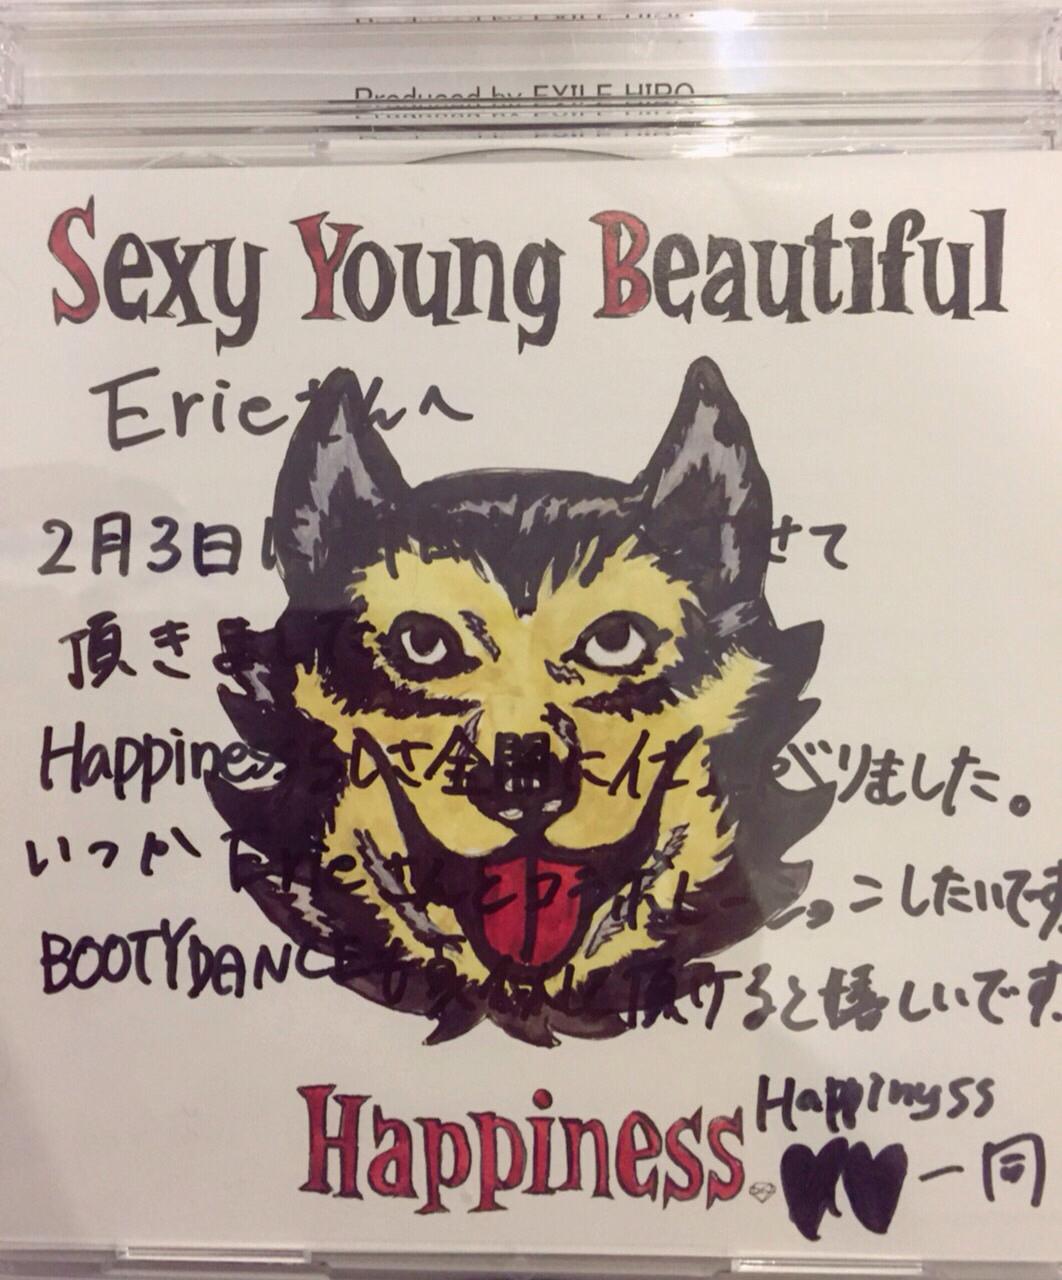 Produced by EXILE HIRO
Sexy Young Beautiful
Ericさんへ
2月3日 せて
頂きまして
Happinessらしさ全開に仕上 りました。
いつか Ericさんとコラボレーションしたいです
BOOTY DANCEも 頂けると嬉しいです
Happiness
Happinyss
一同